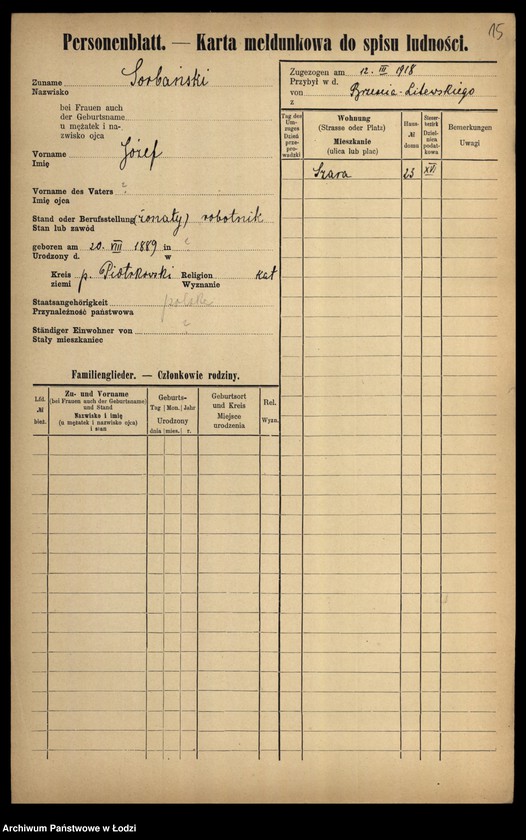 15
Personenblatt. — Karta meldunkowa do spisu ludności.
Zuname Sorbański
Nazwisko
bei Frauen auch
der Geburtsname
u mężatek i na-
zwisko ojca
Vorname Józef
Imię
Vorname des Vaters ?
Imię ojca
Stand oder Berufsstellung (żonaty) robotnik
Stan lub zawód
geboren am 20. VIII 1889 in ?
Urodzony d. w
Kreis p. Piotrkowski Religion kat
ziemi Wyznanie
Staatsangehörigkeit polska
Przynależność państwowa
Ständiger Einwohner von ?
Stały mieszkaniec
Zugezogen am 12. III 1918
Przybył w d.
von Brześcia-Litewskiego
z
Tag des Um-zuges Dzień prze-pro-wadzki
Wohnung
(Strasse oder Platz)
Mieszkanie
(ulica lub plac)
Haus-
№
domu
Steuer-bezirk Dziel-nica podat-kowa
Bemerkungen
Uwagi
Szara 23 XVI
Familienglieder. — Członkowie rodziny.
Lfd.
№
bież.
Zu- und Vorname
(bei Frauen auch der Geburtsname)
und Stand
Nazwisko i imię
(u mężatek i nazwisko ojca)
i stan
Geburts-
Tag | Mon. | Jahr
Urodzony
dnia | mies. | r.
Geburtsort
und Kreis
Miejsce
urodzenia
Rel.
Wyzn.
Archiwum Państwowe w Łodzi